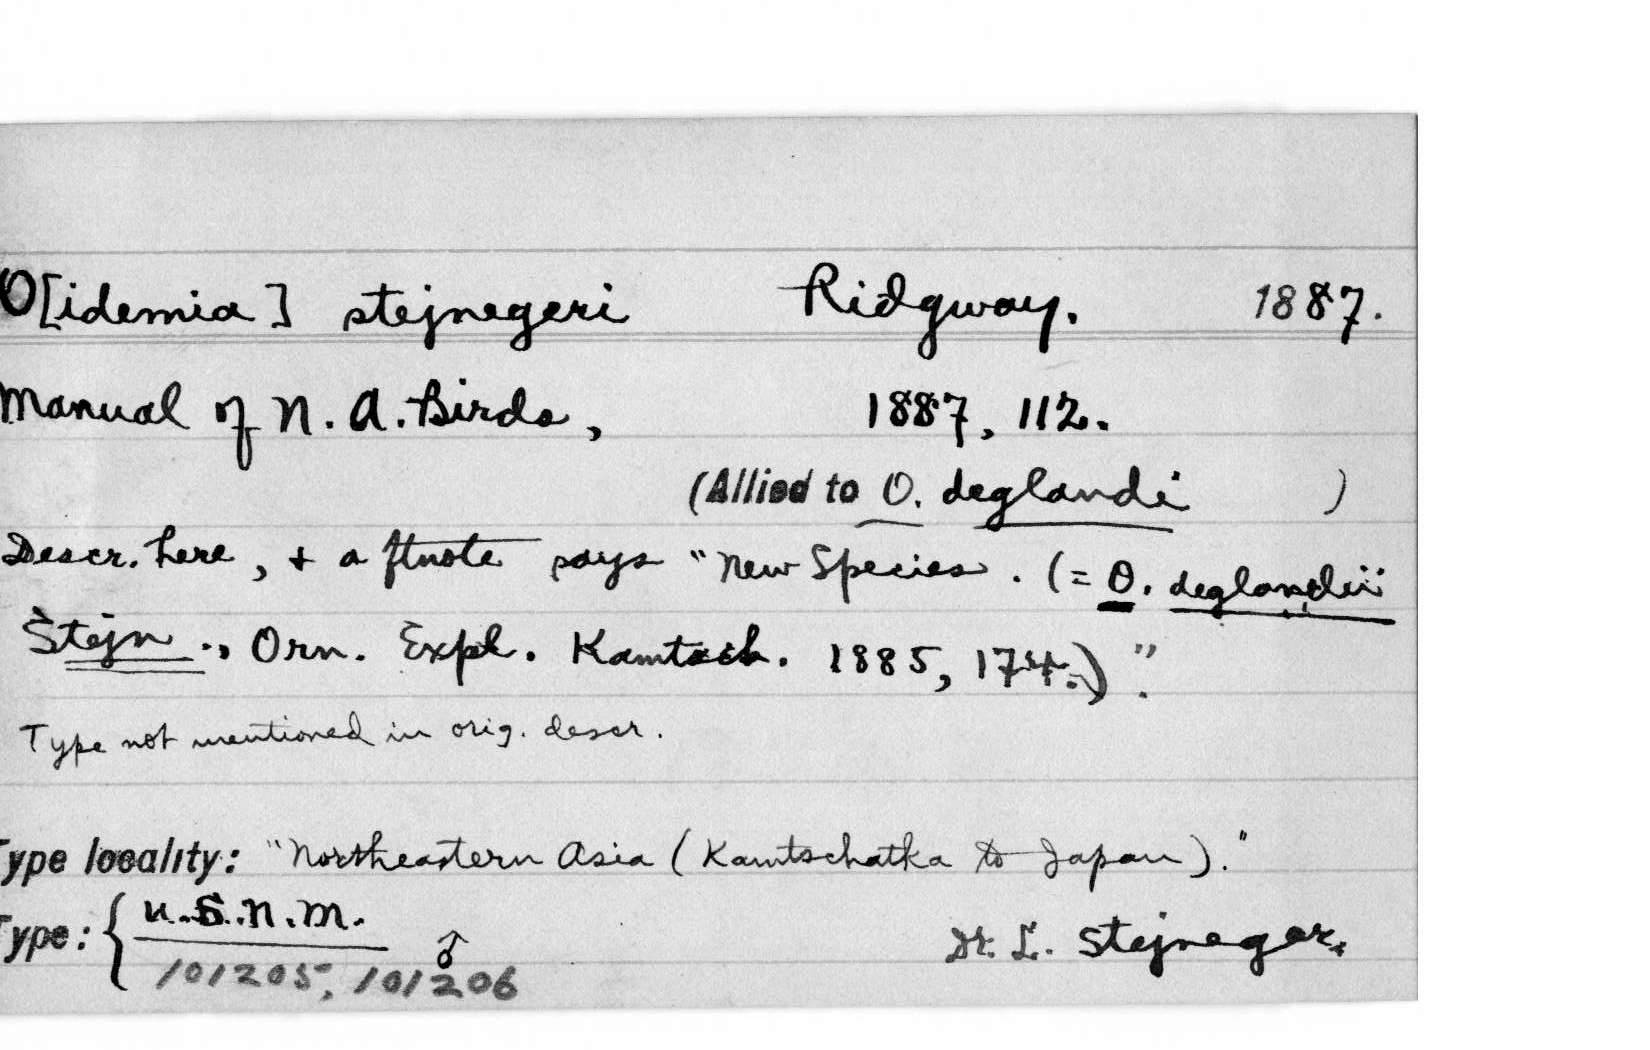 O[idemia] stejnegeri Ridgway. 1887.
Manual of N. A. Birds, 1887, 112.
(Allied to O. deglandi )
Descr. here, + a ftnote says "New Species. (= O. deglandii
Stejn., Orn. Expl. Kamtsch. 1885, 174.)".
Type not mentioned in orig. descr.
Type locality: "Northeastern Asia (Kamtschatka to Japan)."
Type: { U.S.N.M. ♂ Dr. L. Stejneger.
101205, 101206